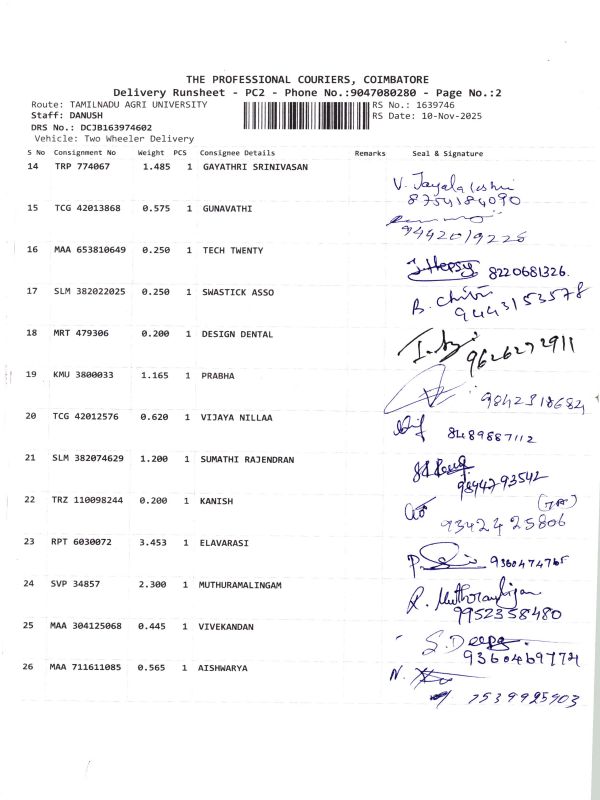 THE PROFESSIONAL COURIERS, COIMBATORE
Delivery Runsheet - PC2 - Phone No.:9047080280 - Page No.:2
Route: TAMILNADU AGRI UNIVERSITY RS No.: 1639746
Staff: DANUSH RS Date: 10-Nov-2025
DRS No.: DCJB163974602
Vehicle: Two Wheeler Delivery
S No Consignment No Weight PCS Consignee Details Remarks Seal & Signature
14 TRP 774067 1.485 1 GAYATHRI SRINIVASAN
8754184090
15 TCG 42013868 0.575 1 GUNAVATHI
9442019226
16 MAA 653810649 0.250 1 TECH TWENTY
J. Hepsy 8220681326.
17 SLM 382022025 0.250 1 SWASTICK ASSO
9443153578
18 MRT 479306 0.200 1 DESIGN DENTAL
9626272911
19 KMU 3800033 1.165 1 PRABHA
9842318684
20 TCG 42012576 0.620 1 VIJAYA NILLAA
8489887112
21 SLM 382074629 1.200 1 SUMATHI RAJENDRAN
98447-93542
22 TRZ 110098244 0.200 1 KANISH
93424 25806
23 RPT 6030072 3.453 1 ELAVARASI
9360474765
24 SVP 34857 2.300 1 MUTHURAMALINGAM
9952358480
25 MAA 304125068 0.445 1 VIVEKANDAN
S. Deepa
9360469774
26 MAA 711611085 0.565 1 AISHWARYA
N.
7539925903